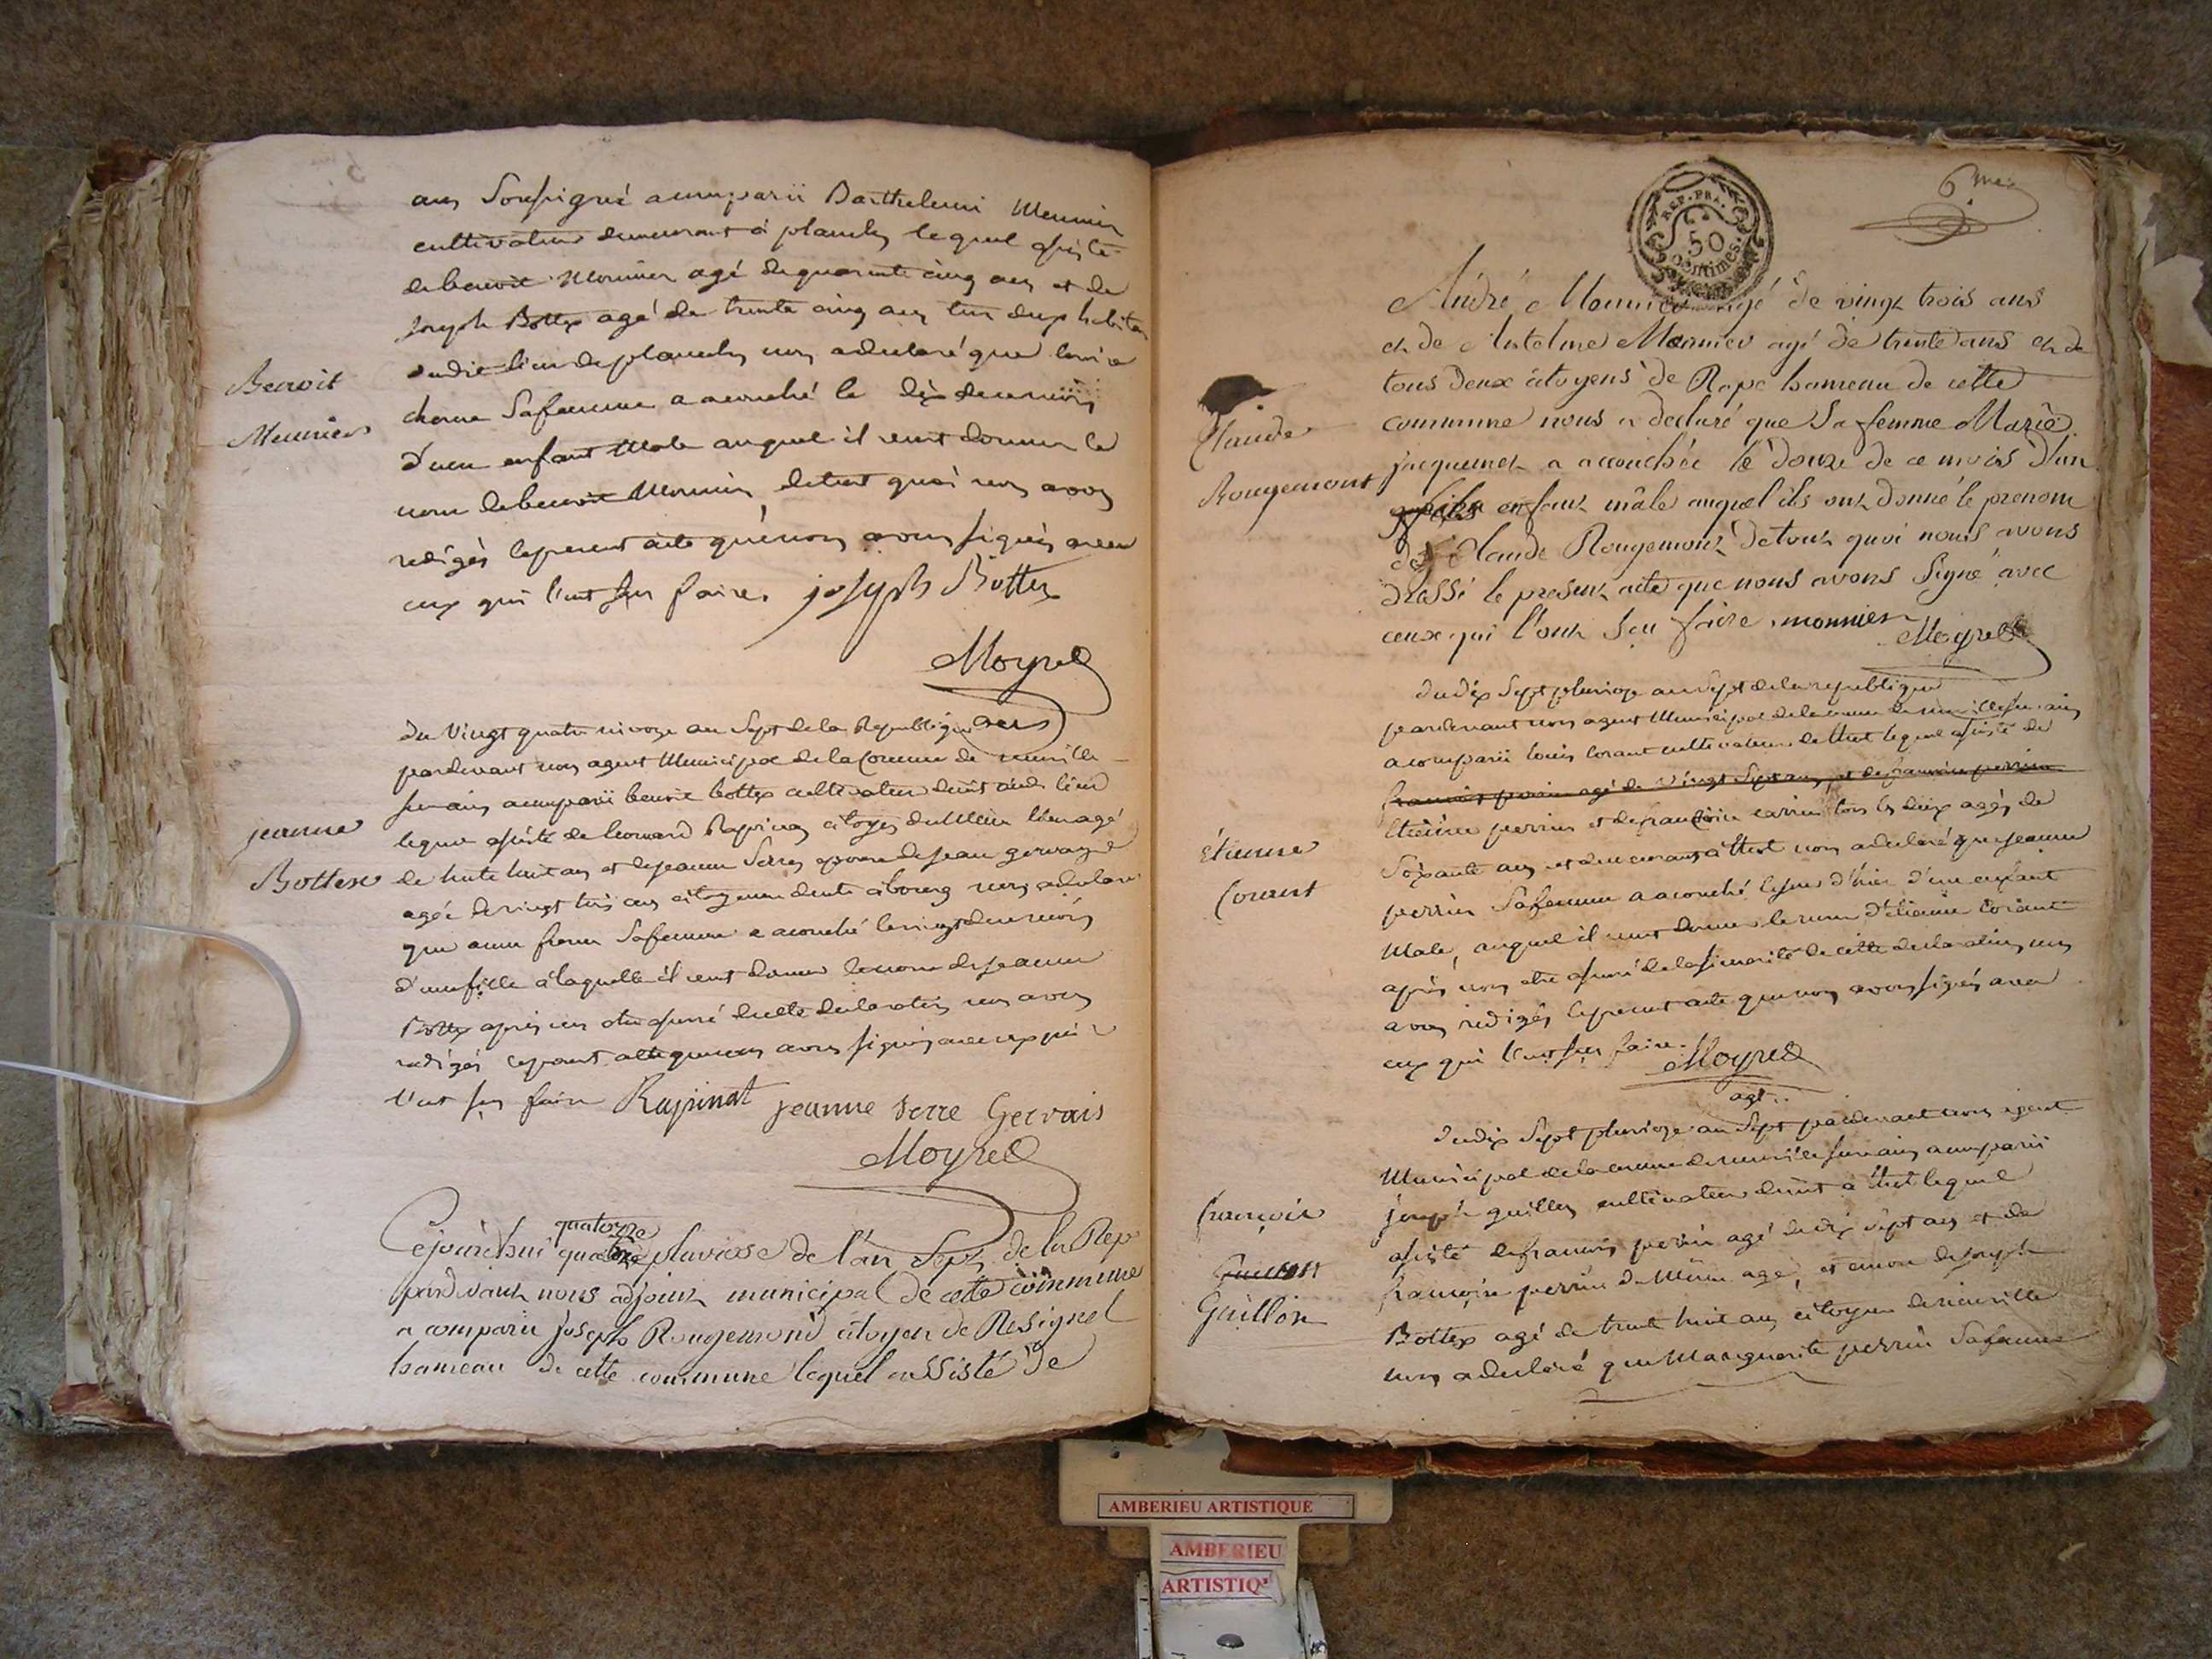 aus Soussigné a comparü Barthelemi Meunier
cultivateur demeurant a planches lequel assisté
de benoit Monnier agé de quarante cinq ans et de
joseph Bottex agé de trente cinq ans tous deux habitan
dudit lieu de planches nous a declaré que
Benoit
Meunier
sa femme a acouché le dix du
d'un enfant Male auquel il veut donner le
nom de benoit Monnier de tout quoi nous avons
redigés le present acte que nous avons signés avec
ceux qui l'ont sçu faire. joseph Bottex
Moyret
du vingt quatre nivoze an Sept de la Republique
pardevant nous agent Municipal de la Comune de neuville
sur ain comparü benoit bottex cultivateur dud. lieu
lequel assisté de leonard Rapinat citoyen du Meme lieu agé
jeanne
Bottex
de trente huit ans et de jeanne Serre epouse de jean gervais
agée de vingt trois ans citoyenne dudit nous a declaré
que sa femme a acouché le vingt du
d'une fille a laquelle il veut donner le nom de jeanne
Bottex après nous etre assuré de cette declaration nous avons
redigés le present acte que nous avons signés avec ceux qui
l'ont sçu faire Rapinat jeanne serre Gervais
Moyret
quatorze
Cejourd'hui pluviose de l'an Sept de la Rep
pardevant nous adjoint municipal de cette commune
a comparu joseph Rougemond citoyen de Résignel
hameau de cette commune lequel assisté de
6me
REP. FRA.
50
centimes.
André Monnier agé de vingt trois ans
et de Antelme Monnier agé de trente ans et de
tous deux citoyens de Rape hameau de cette
commune nous a declaré que Sa femme Marie
Claude
Rougemont
jacquemet a accouchée le douze de ce mois d'un
enfant mâle auquel ils ont donné le prenom
de Claude Rougemont de tout quoi nous avons
dressé le present acte que nous avons Signé avec
ceux qui l'ont Sçu faire. monnier Moyret
du dix Sept pluviose an Sept de la republique
pardevant nous agent Municipal de la comune de neuville sur ain
a comparü louis corant cultivateur de thol lequel assisté de
francois perrin agé de vingt Sept ans et de francoise perrin
étienne
Corant
Etienne perrin et de francoise tous les deux agés de
Soixante ans et demeurant a thol nous a declaré que jeanne
perrin Sa femme a acouché le jour d'hier d'un enfant
Male, auquel il veut donner le nom d'étienne Corant
après nous etre assuré de la sincerité de cette declaration nous
avons redigés le present acte que nous avons signés avec
ceux qui l'ont sçu faire. Moyret
agt..
du dix Sept pluvioze an Sept pardevant nous agent
Municipal de la comune de neuville sur ain a comparü
françois
Guillon
joseph guillon cultivateur a thol lequel
assisté de francois perrin agé de dix sept ans et de
francoise perrin du Même age, et encore de joseph
Bottex agé de trente huit ans citoyen de neuville
nous a declaré que Marguerite perrin Sa femme
AMBERIEU ARTISTIQUE
AMBERIEU
ARTISTIQ'